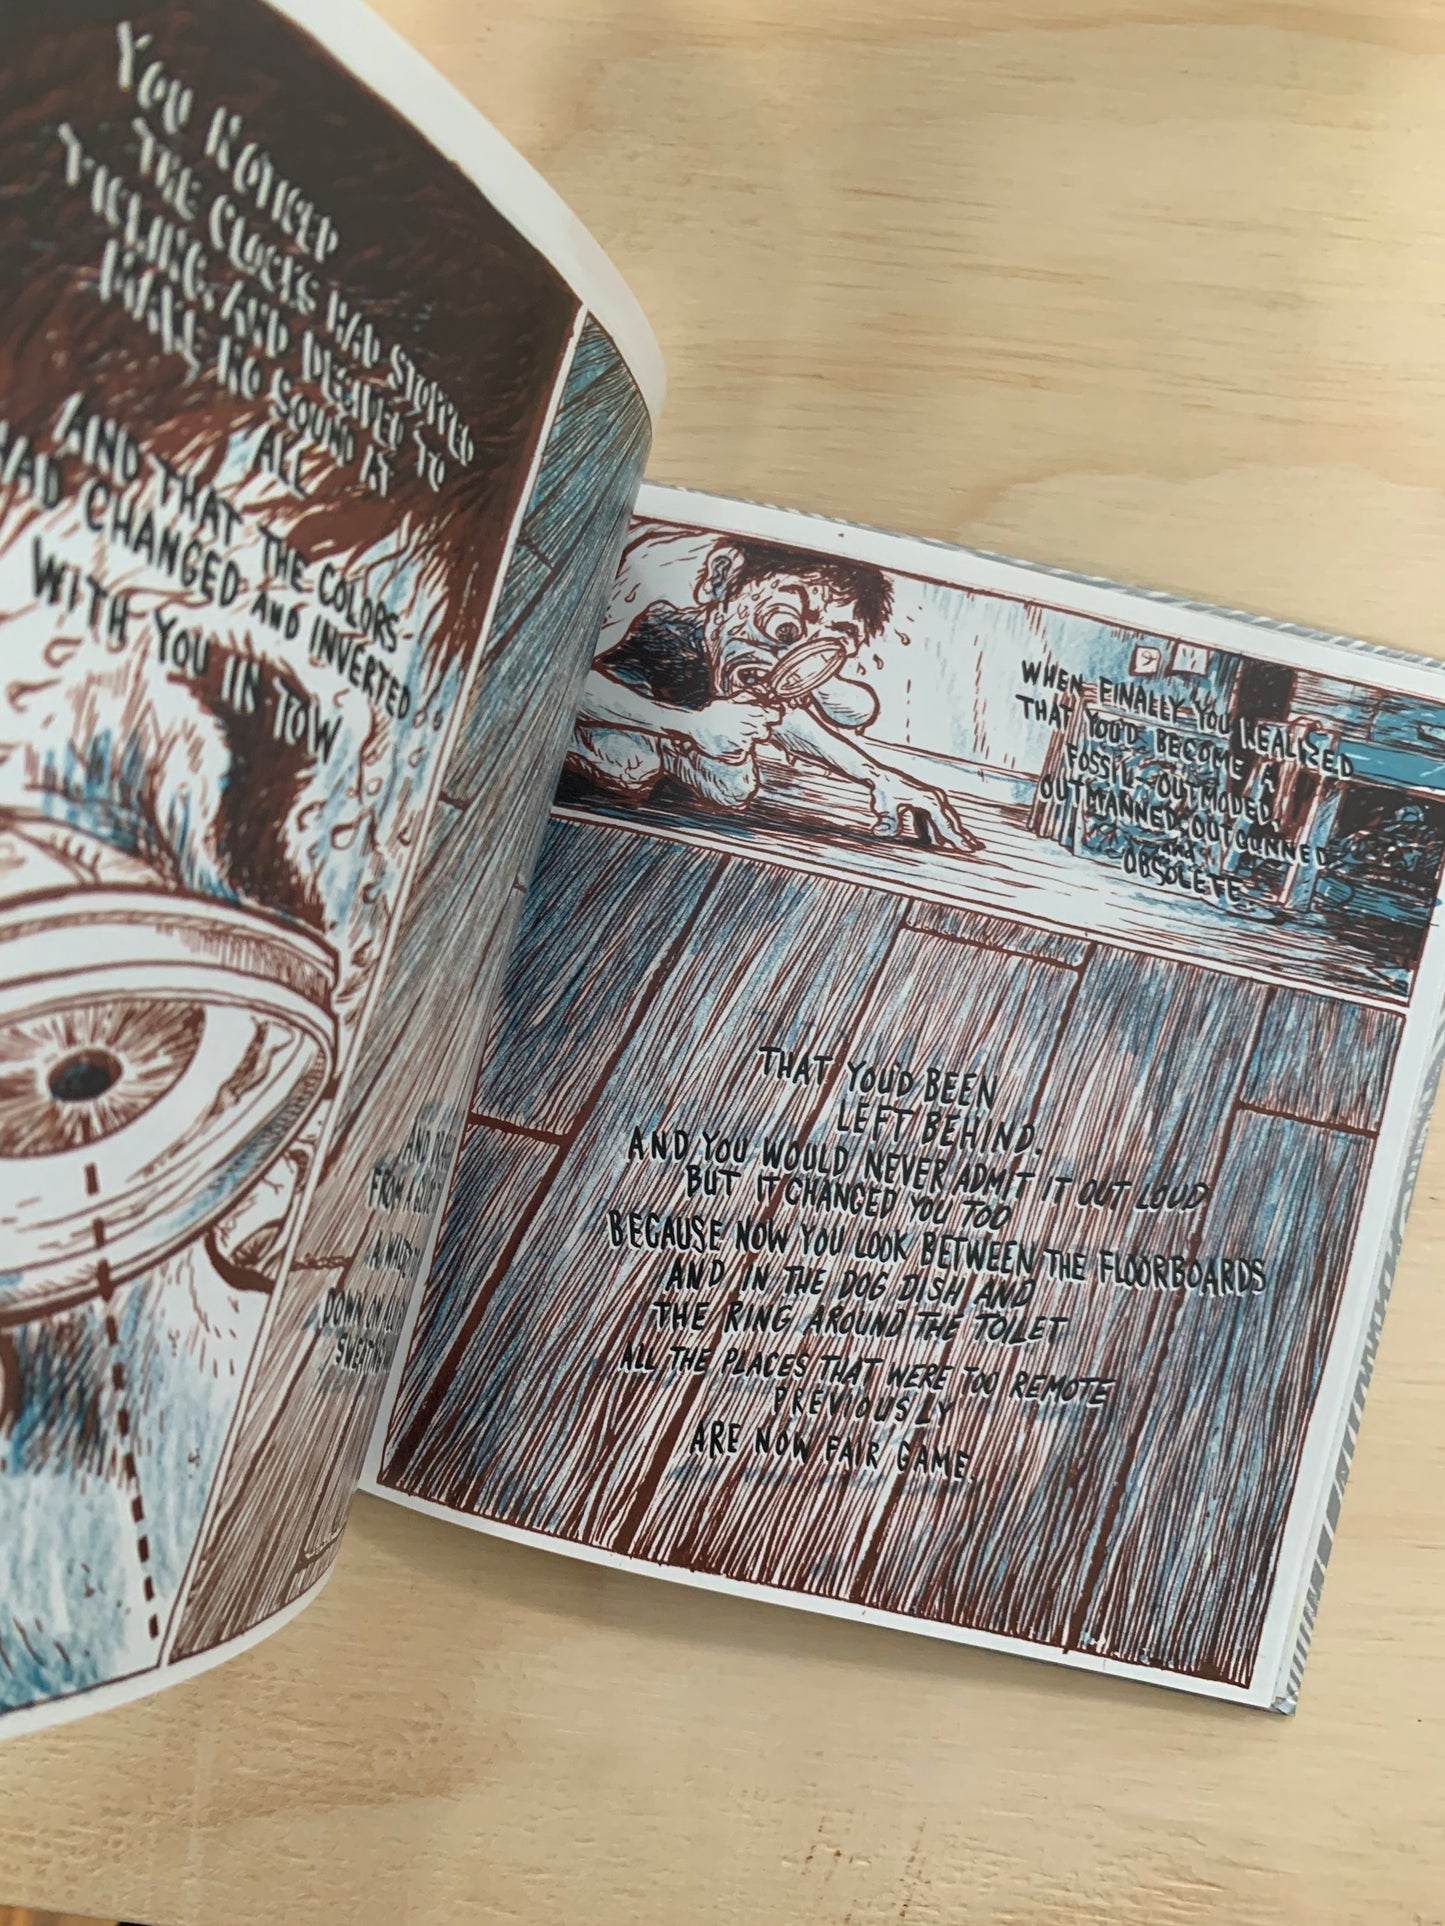 YOU NOTICED
THE CLOCKS HAD STOPPED
TICKING, AND DECIDED TO
MAKE NO SOUND AT
ALL
AND THAT THE COLORS
HAD CHANGED AND INVERTED
WITH YOU IN TOW
AND
FROM A
A WILD
DOWN ON ALL
SWEATING
WHEN FINALLY YOU REALIZED
THAT YOU'D BECOME A
FOSSIL, OUTMODED,
OUTMANNED, OUTGUNNED
and
OBSOLETE
THAT YOU'D BEEN
LEFT BEHIND.
AND YOU WOULD NEVER ADMIT IT OUT LOUD
BUT IT CHANGED YOU TOO
BECAUSE NOW YOU LOOK BETWEEN THE FLOORBOARDS
AND IN THE DOG DISH AND
THE RING AROUND THE TOILET
ALL THE PLACES THAT WERE TOO REMOTE
PREVIOUSLY
ARE NOW FAIR GAME.